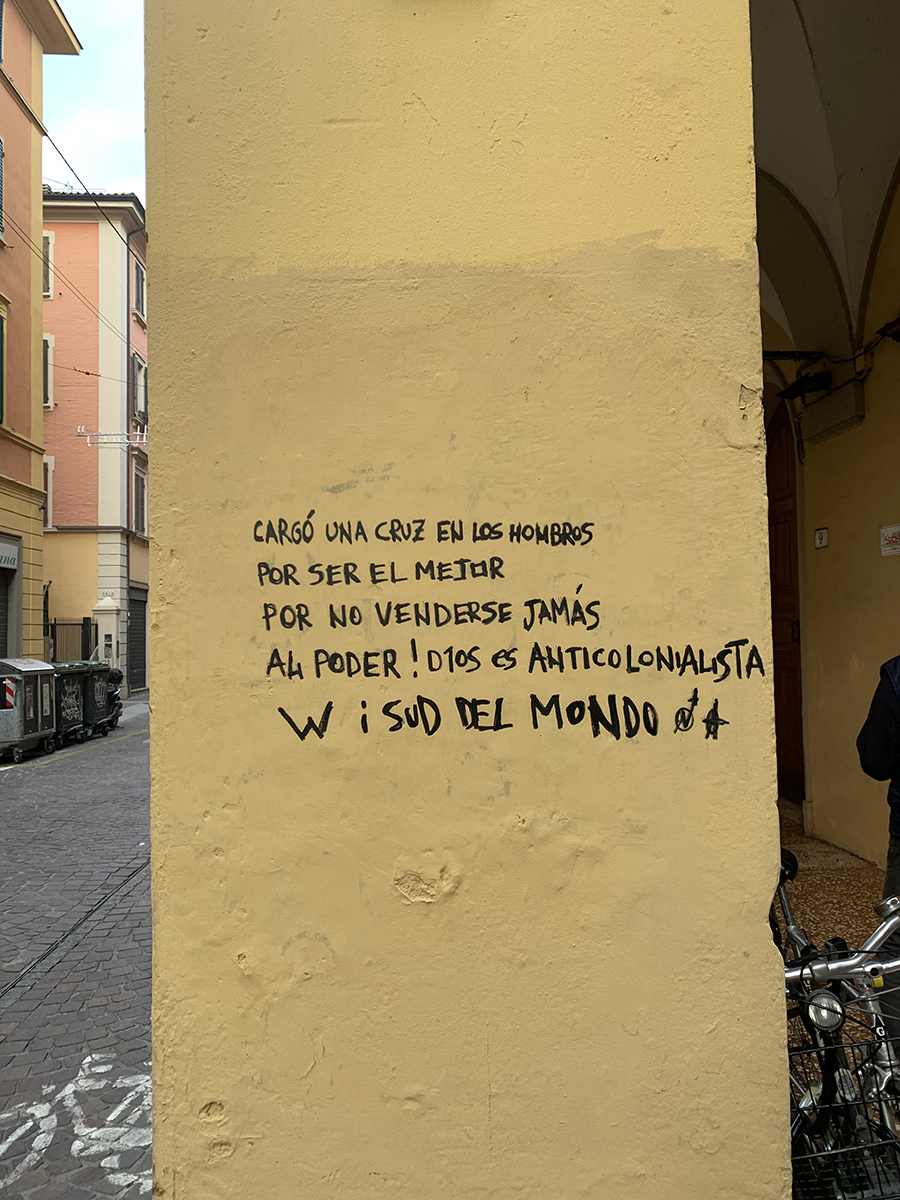 CARGÓ UNA CRUZ EN LOS HOMBROS
POR SER EL MEJOR
POR NO VENDERSE JAMÁS
AL PODER ! D10S es ANTICOLONIALISTA
W i SUD DEL MONDO
9
ana